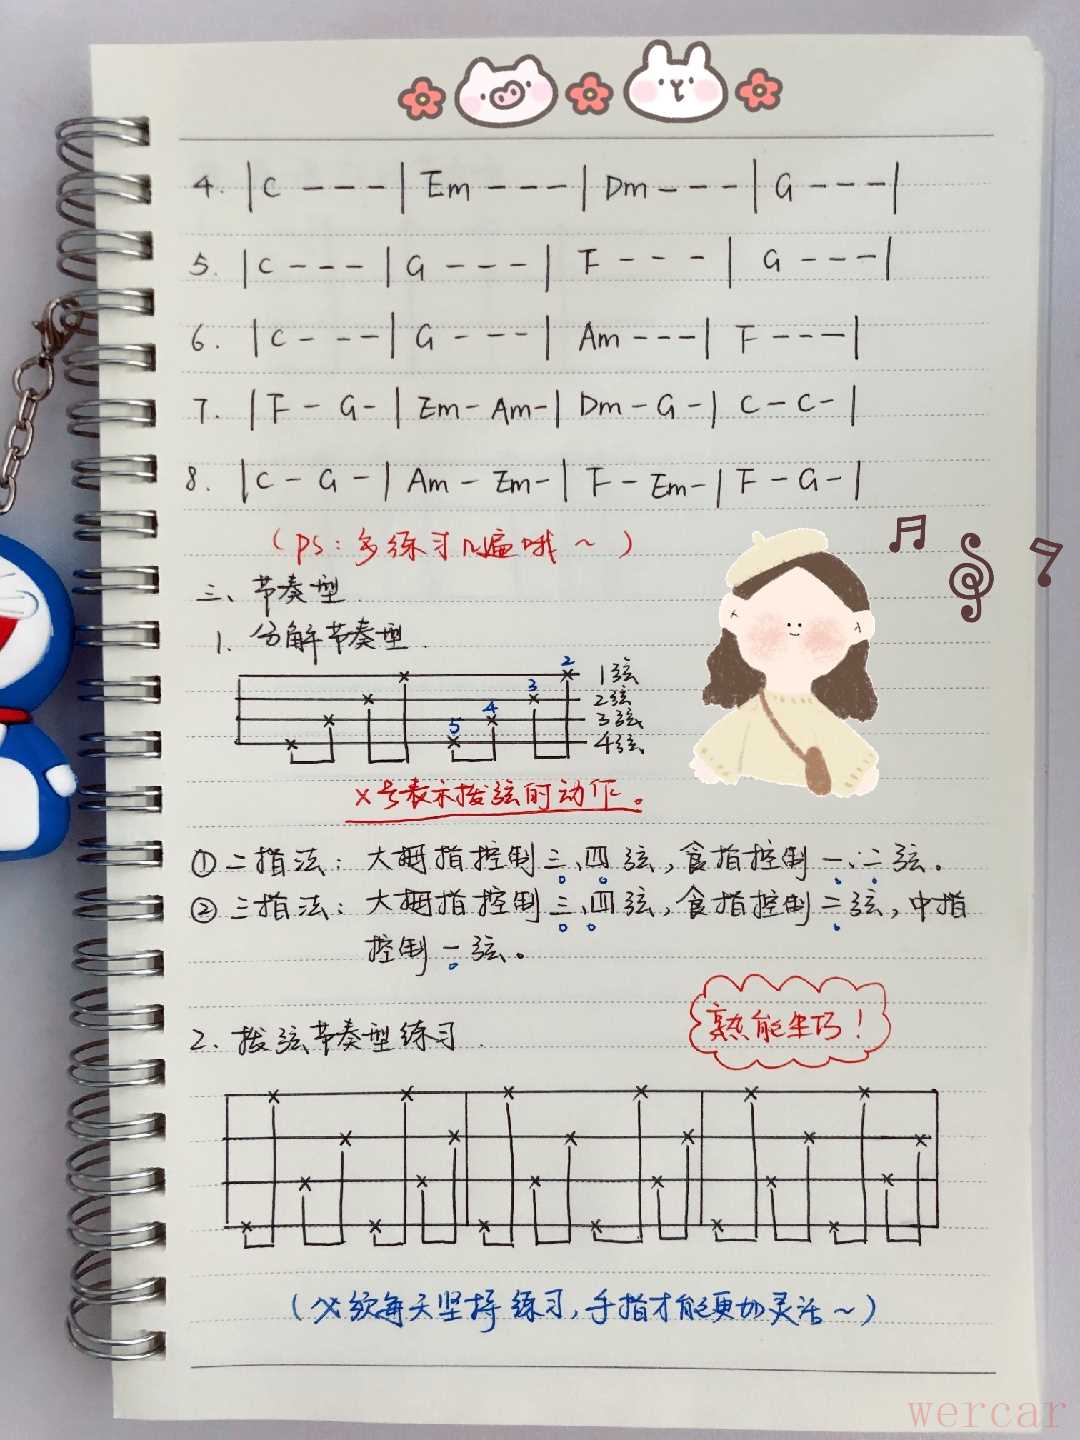 4. | C - - - | Em - - - | Dm - - - | G - - - |
5. | C - - - | G - - - | F - - - | G - - - |
6. | C - - - | G - - - | Am - - - | F - - - |
7. | F - G - | Em - Am - | Dm - G - | C - C - |
8. | C - G - | Am - Em - | F - Em - | F - G - |
（PS：多练习几遍哦～）
三、节奏型.
1. 分解节奏型.
2 1弦
3 2弦
4 3弦
5 4弦
×号表示拨弦的动作。
①二指法：大拇指控制三、四弦，食指控制一、二弦。
②三指法：大拇指控制三、四弦，食指控制二弦，中指
控制一弦。
2. 拨弦节奏型练习.
熟能生巧！
（必须每天坚持练习，手指才能更加灵活～）
wercar